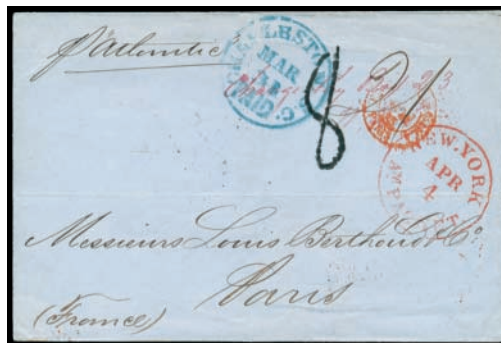 p Atlantic
CHARLESTON
MAR
31
PAID
8
21
NEW.YORK
APR
4
Messieurs Louis Berthoud & Co.
Paris
(France)